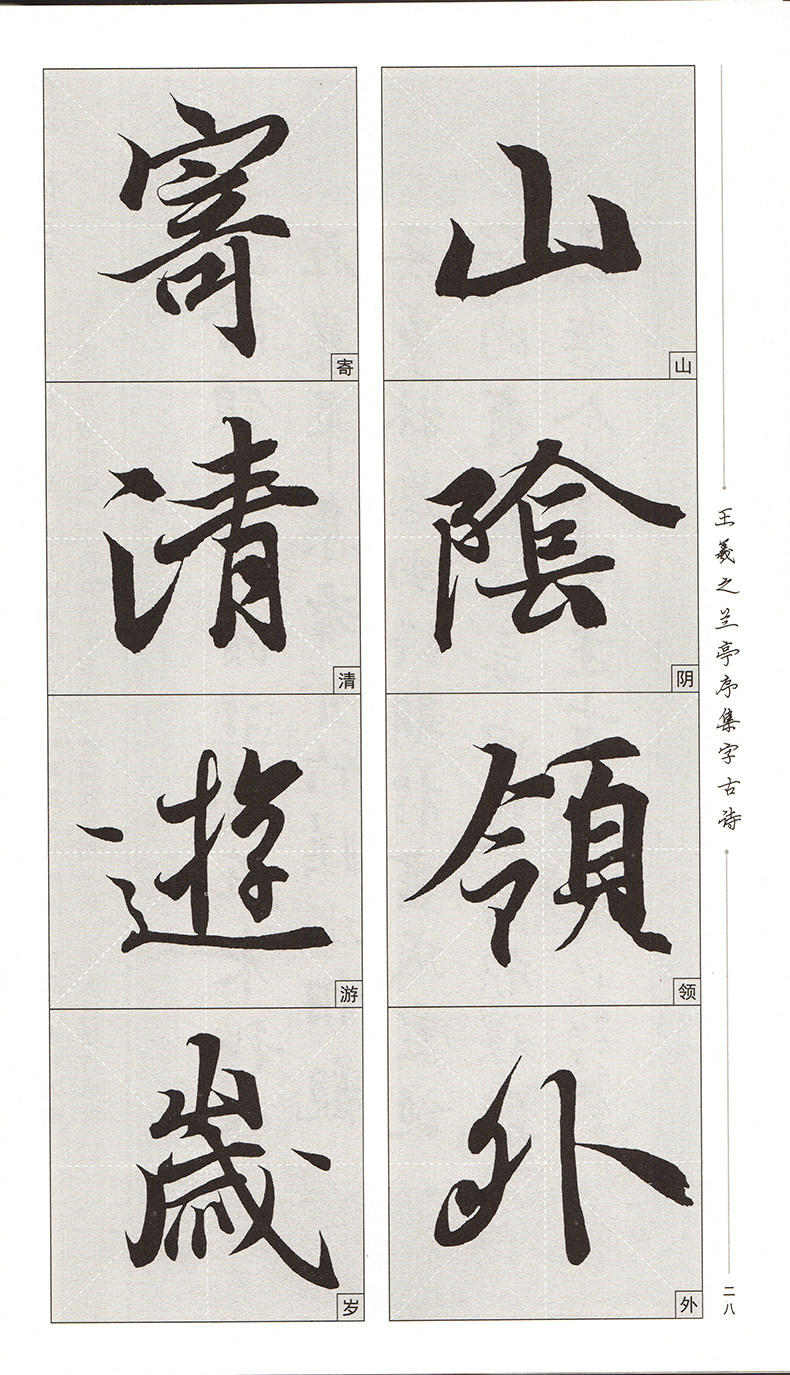 山陰領外
山
阴
领
外
寄清遊歲
寄
清
游
岁
王羲之兰亭序集字古诗
二八